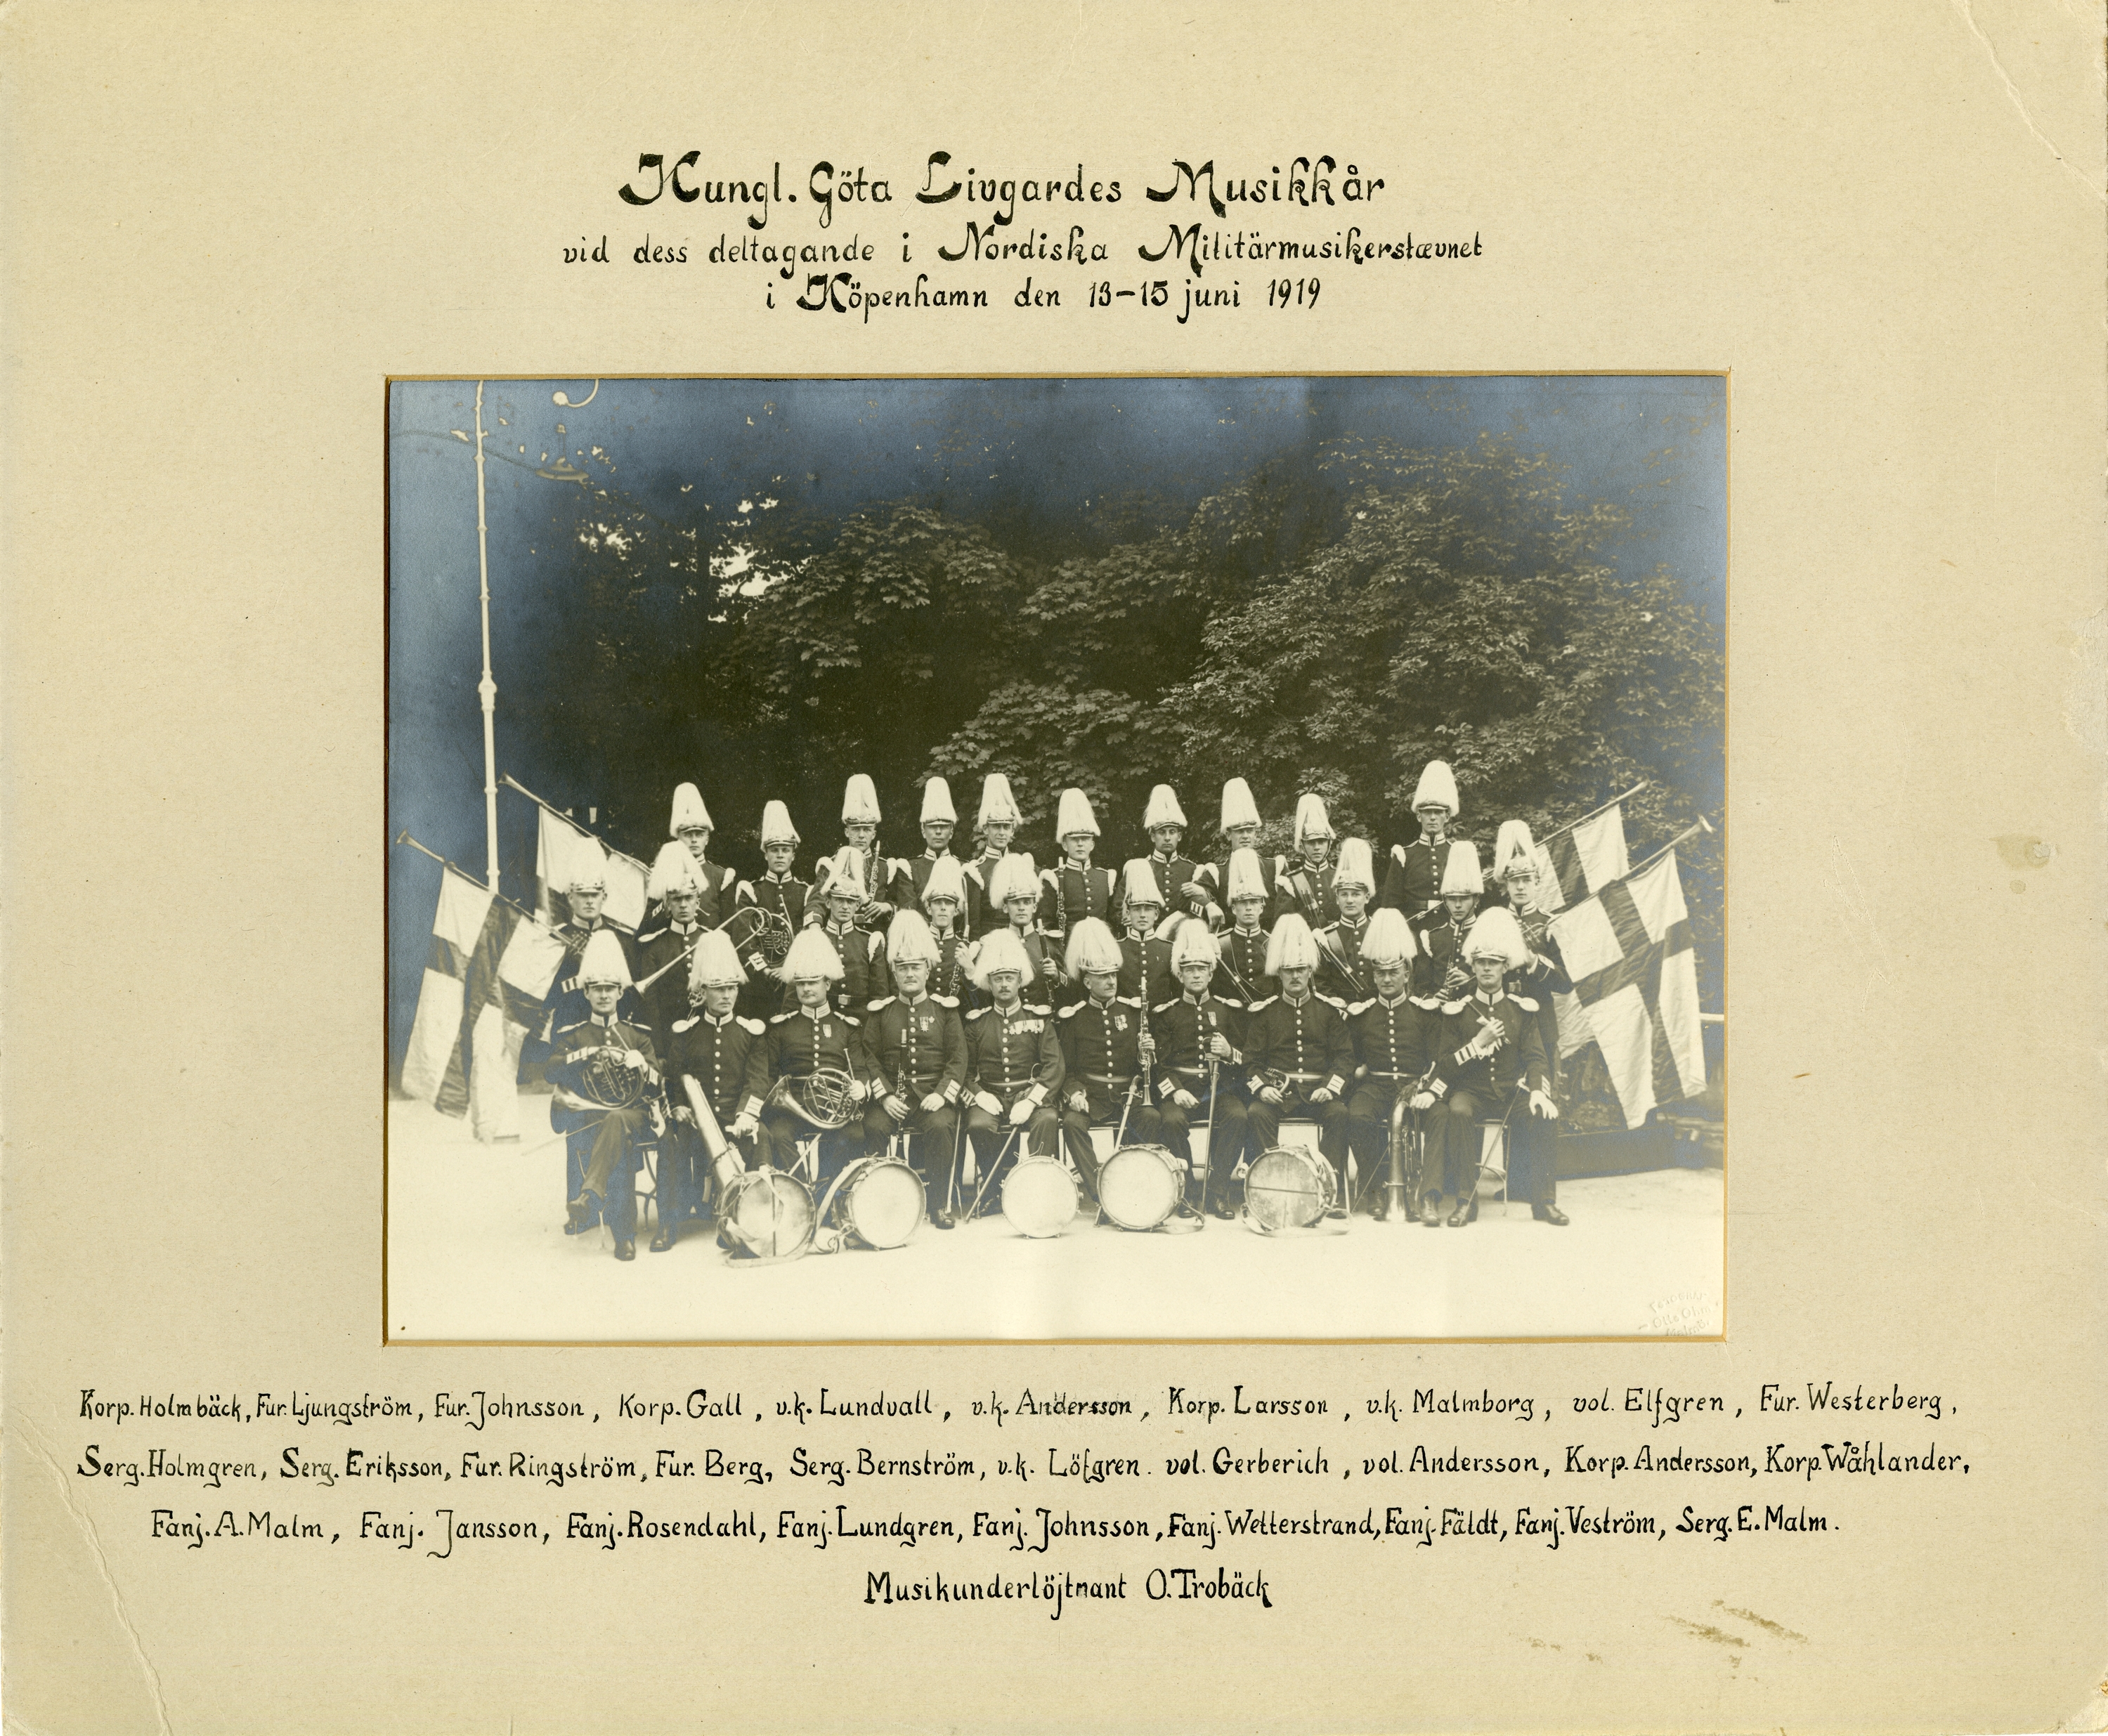 Kungl. Göta Livgardes Musikkår
vid dess deltagande i Nordiska Militärmusikerstævnet
i Köpenhamn den 13-15 juni 1919
Otto Ohm
Malmö.
Korp. Holmbäck, Fur. Ljungström, Fur. Johnsson, Korp. Gall, v.k. Lundvall, v.k. Andersson, Korp. Larsson, v.k. Malmborg, vol. Elfgren, Fur. Westerberg,
Serg. Holmgren, Serg. Eriksson, Fur. Ringström, Fur. Berg, Serg. Bernström, v.k. Löfgren. vol. Gerberich, vol. Andersson, Korp. Andersson, Korp. Wåhlander,
Fanj. A. Malm, Fanj. Jansson, Fanj. Rosendahl, Fanj. Lundgren, Fanj. Johnsson, Fanj. Wetterstrand, Fanj. Fäldt, Fanj. Veström, Serg. E. Malm.
Musikunderlöjtnant O. Trobäck